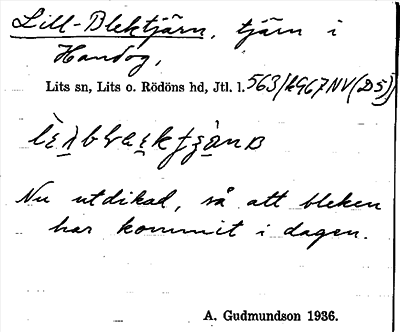 Lill-Blektjärn, tjärn i
Handog,
Lits sn, Lits o. Rödöns hd, Jtl. l. 563/k967NV(D5)
Nu utdikad, så att bleken
har kommit i dagen.
A. Gudmundson 1936.